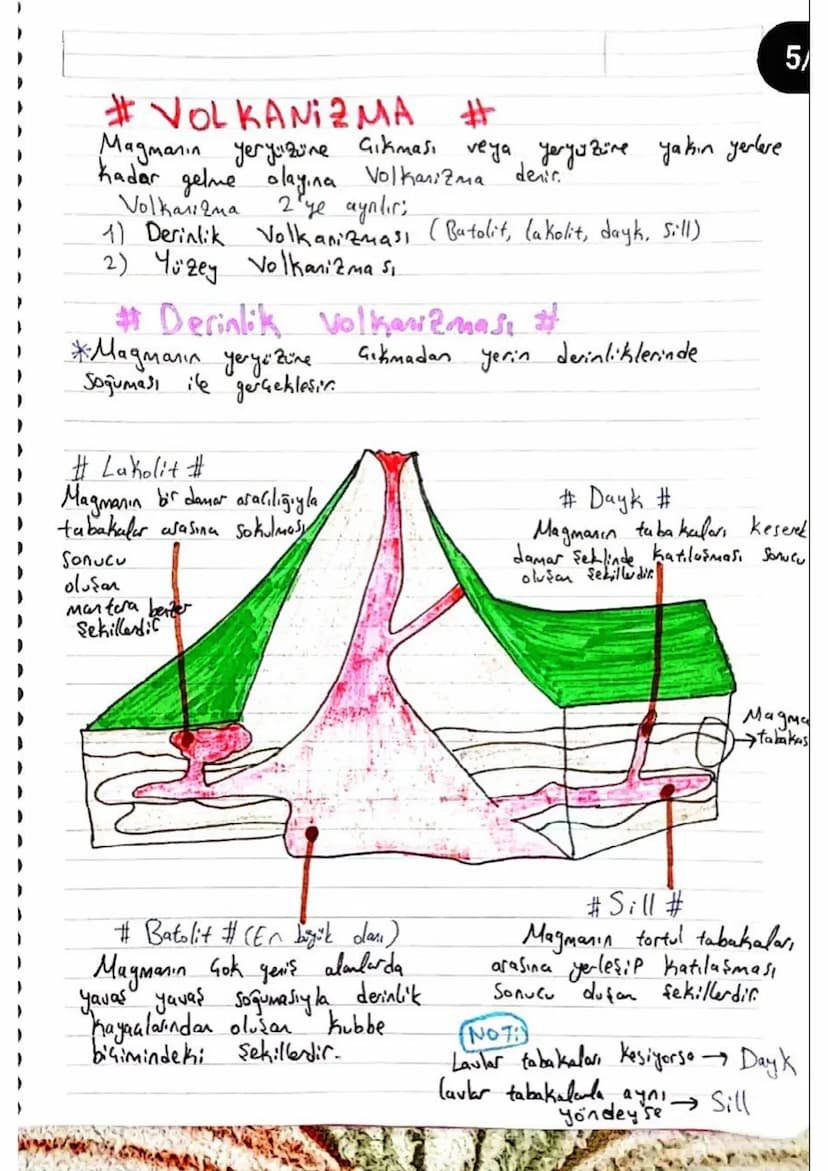 5/
# VOLKANİZMA #
Magmanın yeryüzüne çıkması veya yeryüzüne yakın yerlere
kadar gelme olayına Volkanizma denir.
Volkanizma 2'ye ayrılır;
1) Derinlik Volkanizması (Batolit, lakolit, dayk, sill)
2) Yüzey Volkanizması
# Derinlik Volkanizması #
*Magmanın yeryüzüne çıkmadan yerin derinliklerinde
soğuması ile gerçekleşir.
# Lakolit #
Magmanın bir damar aracılığıyla
tabakalar arasına sokulması
sonucu
oluşan
mantara benzer
şekillerdir
# Dayk #
Magmanın tabakaları keserek
damar şeklinde katılaşması sonucu
oluşan şekillerdir.
Magma
→tabakas
# Batolit # (En büyük olanı)
Magmanın çok geniş alanlarda
yavaş yavaş soğumasıyla derinlik
kayaçlarından oluşan kubbe
biçimindeki şekillerdir.
# Sill #
Magmanın tortul tabakaları
arasına yerleşip katılaşması
sonucu oluşan şekillerdir.
NOT:
Lavlar tabakaları kesiyorsa → Dayk
lavlar tabakalarla aynı
yöndeyse → Sill